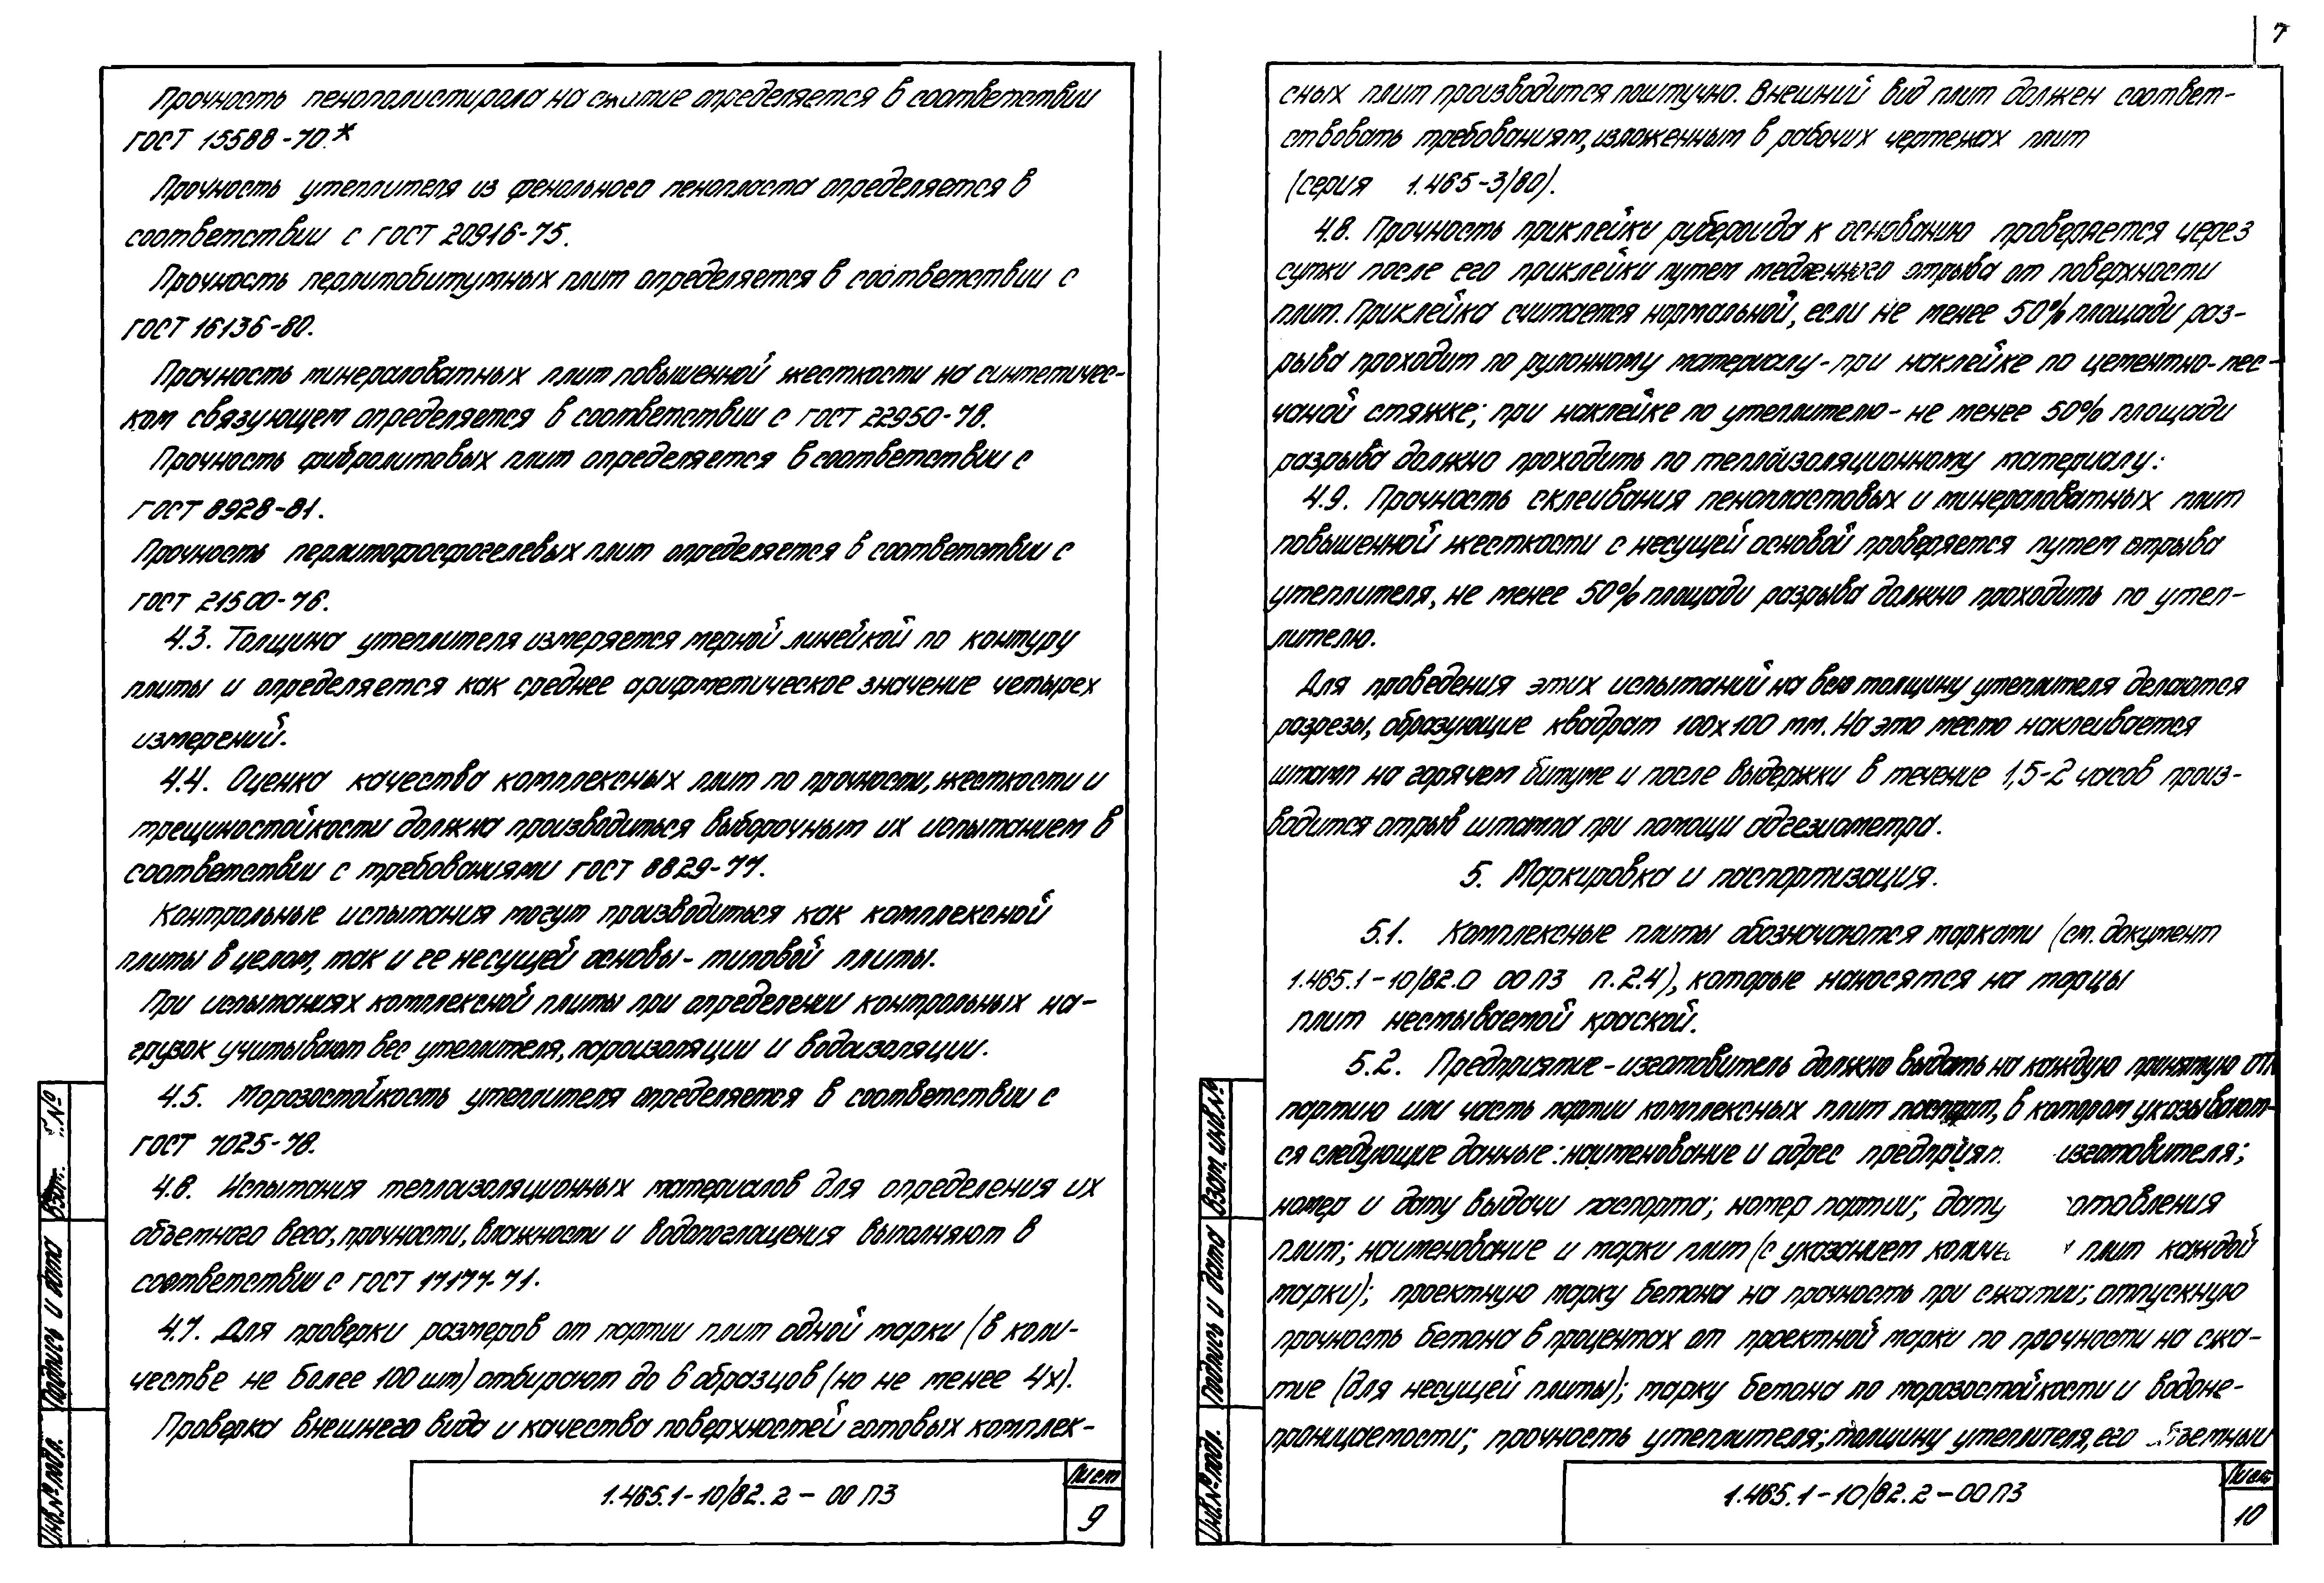 Прочность пенополистирола на сжатие определяется в соответствии
ГОСТ 15588-70.*
Прочность утеплителя из фенольного пенопласта определяется в
соответствии с ГОСТ 20916-75.
Прочность перлитобитумных плит определяется в соответствии с
ГОСТ 16136-80.
Прочность минераловатных плит повышенной жесткости на синтетичес-
ком связующем определяется в соответствии с ГОСТ 22950-78.
Прочность фибролитовых плит определяется в соответствии с
ГОСТ 8928-81.
Прочность перлитофосфогелевых плит определяется в соответствии с
ГОСТ 21500-76.
4.3. Толщина утеплителя измеряется мерной линейкой по контуру
плиты и определяется как среднее арифметическое значение четырех
измерений.
4.4. Оценка качества комплексных плит по прочности, жесткости и
трещиностойкости должна производиться выборочным их испытанием в
соответствии с требованиями ГОСТ 8829-77.
Контрольные испытания могут производиться как комплексной
плиты в целом, так и ее несущей основы - типовой плиты.
При испытаниях комплексной плиты при определении контрольных на-
грузок учитывают вес утеплителя, пароизоляции и водоизоляции.
4.5. Морозостойкость утеплителя определяется в соответствии с
ГОСТ 7025-78.
4.6. Испытания теплоизоляционных материалов для определения их
объемного веса, прочности, влажности и водопоглощения выполняют в
соответствии с ГОСТ 17177-71.
4.7. Для проверки размеров от партии плит одной марки (в коли-
честве не более 100 шт) отбирают до 6 образцов (но не менее 4х).
Проверка внешнего вида и качества поверхностей готовых комплек-
1.465.1-10/82.2-00 ПЗ
Лист
9
Инв.№ подл.
Подпись и дата
Взам. №
7
сных плит производится поштучно. Внешний вид плит должен соответ-
ствовать требованиям, изложенным в рабочих чертежах плит
(серия 1.465-3/80).
4.8. Прочность приклейки рубероида к основанию проверяется через
сутки после его приклейки путем медленного отрыва от поверхности
плит. Приклейка считается нормальной, если не менее 50% площади раз-
рыва проходит по рулонному материалу - при наклейке по цементно-пес-
чаной стяжке; при наклейке по утеплителю - не менее 50% площади
разрыва должно проходить по теплоизоляционному материалу:
4.9. Прочность склеивания пенопластовых и минераловатных плит
повышенной жесткости с несущей основой проверяется путем отрыва
утеплителя, не менее 50% площади разрыва должно проходить по утеп-
лителю.
Для проведения этих испытаний на всю толщину утеплителя делаются
разрезы, образующие квадрат 100х100 мм. На это место наклеивается
штамп на горячем битуме и после выдержки в течение 1,5-2 часов произ-
водится отрыв штампа при помощи адгезиометра.
5. Маркировка и паспортизация.
5.1. Комплексные плиты обозначаются марками (см. документ
1.465.1-10/82.0 00 ПЗ п.2.4), которые наносятся на торцы
плит несмываемой краской.
5.2. Предприятие-изготовитель должно выдать на каждую принятую ОТК
партию или часть партии комплексных плит паспорт, в котором указывают-
ся следующие данные: наименование и адрес предприят изготовителя;
номер и дату выдачи паспорта; номер партии; дату отовления
плит; наименование и марки плит (с указанием количе плит каждой
марки); проектную марку бетона на прочность при сжатии; отпускную
прочность бетона в процентах от проектной марки по прочности на сжа-
тие (для несущей плиты); марку бетона по морозостойкости и водоне-
проницаемости; прочность утеплителя; толщину утеплителя, его объемный
1.465.1-10/82.2-00 ПЗ
Лист
10
Инв.№ подл.
Подпись и дата
Взам. инв.№